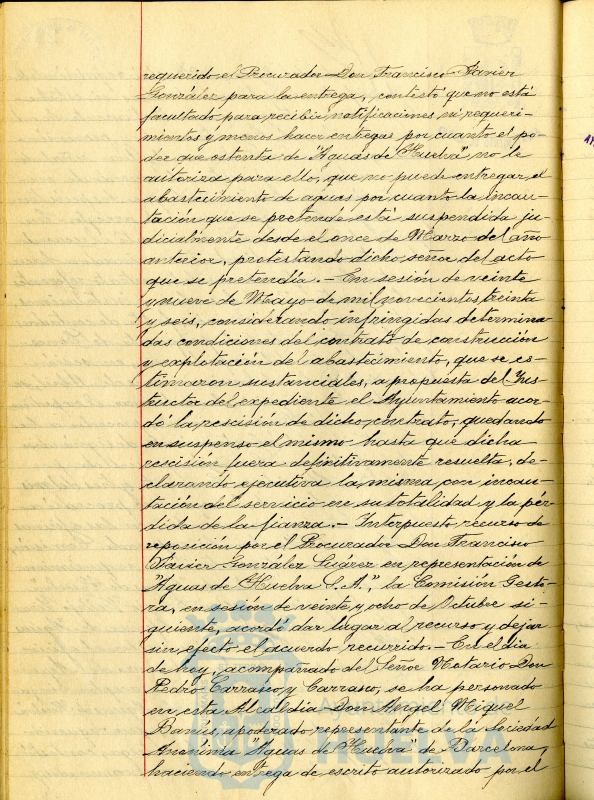 requerido el Procurador Don Francisco Javier
González para la entrega, contestó que no está
facultado para recibir notificaciones ni requeri-
mientos y menos hacer entregas por cuanto el po-
der que ostenta de "Aguas de Huelva", no le
autoriza para ello, que no puede entregar el
abastecimiento de aguas por cuanto la incau-
tación que se pretende está suspendida ju-
dicialmente desde el once de Marzo del año
anterior, protestando dicho señor del acto
que se pretendía.- En sesión de veinte
y nueve de Mayo de mil novecientos treinta
y seis, considerando infringidas determina-
das condiciones del contrato de construcción
y explotación del abastecimiento, que se es-
timaron sustanciales, a propuesta del Ins-
tructor del expediente el Ayuntamiento acor-
dó la rescisión de dicho contrato, quedando
en suspenso el mismo hasta que dicha
recisión fuera definitivamente resuelta, de-
clarando ejecutiva la misma con incau-
tación del servicio en su totalidad y la pér-
dida de la fianza.- Interpuesto recurso de
reposición por el Procurador Don Francisco
Javier González Suárez en representación de
"Aguas de Huelva S.A.", la Comisión Gesto-
ra, en sesión de veinte y ocho de Octubre si-
guiente, acordó dar lugar al recurso y dejar
sin efecto el acuerdo recurrido.- En el día
de hoy, acompañado del Señor Notario Don
Pedro Carrasco y Carrasco, se ha personado
en esta Alcaldía Don Angel Miguel
Banús, apoderado representante de la Sociedad
Anónima "Aguas de Huelva" de Barcelona,
haciendo entrega de escrito autorizado por el
HUELVA